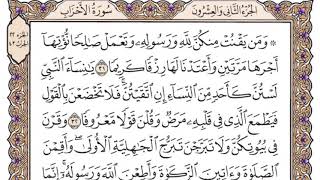 الجزء الثاني والعشرون
سورة الأحزاب
وَمَن يَقْنُتْ مِنكُنَّ لِلَّهِ وَرَسُولِهِ وَتَعْمَلْ صَالِحًا نُّؤْتِهَا
أَجْرَهَا مَرَّتَيْنِ وَأَعْتَدْنَا لَهَا رِزْقًا كَرِيمًا ٣١ يَا نِسَاءَ النَّبِيِّ
لَسْتُنَّ كَأَحَدٍ مِّنَ النِّسَاءِ إِنِ اتَّقَيْتُنَّ فَلَا تَخْضَعْنَ بِالْقَوْلِ
فَيَطْمَعَ الَّذِي فِي قَلْبِهِ مَرَضٌ وَقُلْنَ قَوْلًا مَّعْرُوفًا ٣٢ وَقَرْنَ
فِي بُيُوتِكُنَّ وَلَا تَبَرَّجْنَ تَبَرُّجَ الْجَاهِلِيَّةِ الْأُولَى وَأَقِمْنَ
الصَّلَوٰةَ وَءَاتِينَ الزَّكَوٰةَ وَأَطِعْنَ اللَّهَ وَرَسُولَهُ إِنَّمَا